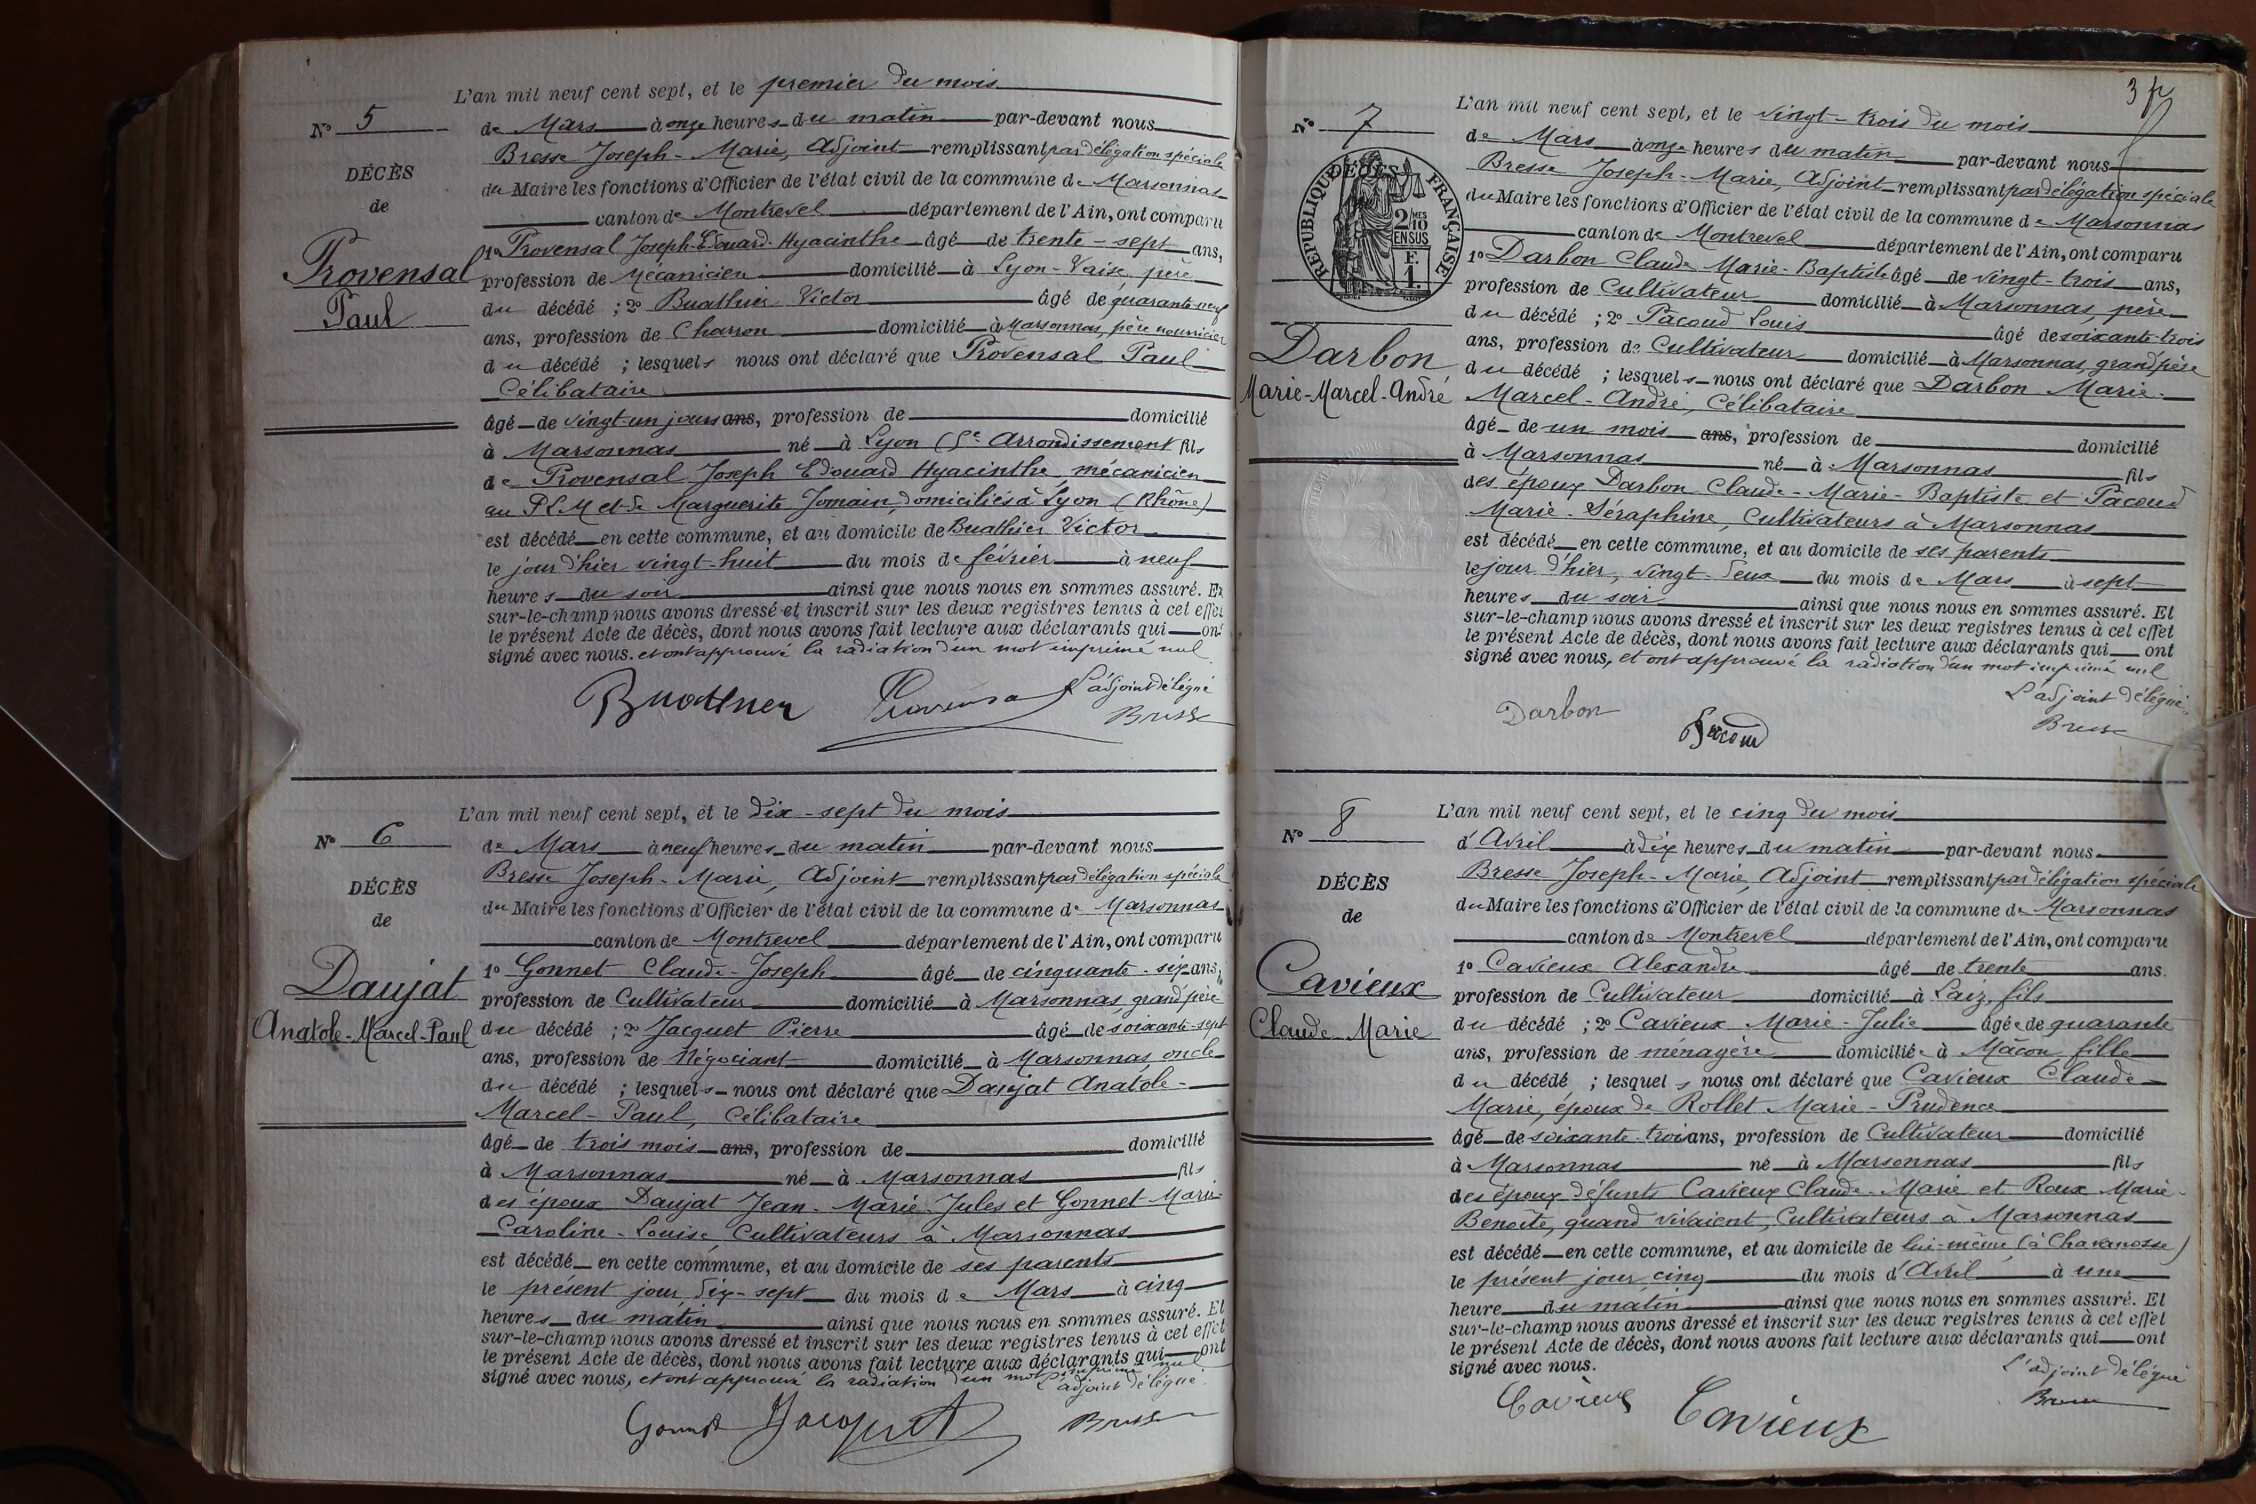 L'an mil neuf cent sept, et le premier du mois
N° 5
de Mars à onze heures du matin par-devant nous
Bresse Joseph-Marie, Adjoint remplissant par délégation spéciale
DÉCÈS
du Maire les fonctions d'Officier de l'état civil de la commune de Marsonnas
de
canton de Montrevel département de l'Ain, ont comparu
Provensal
Paul
1° Provensal Joseph-Edouard-Hyacinthe âgé de trente-sept ans,
profession de mécanicien domicilié à Lyon-Vaise, père
du décédé ; 2° Buathier Victor âgé de quarante-neuf
ans, profession de Charron domicilié à Marsonnas, père nourricier
du décédé ; lesquels nous ont déclaré que Provensal Paul
Célibataire
âgé de vingt-un jours ans, profession de domicilié
à Marsonnas né à Lyon (5e Arrondissement fils
de Provensal Joseph Edouard Hyacinthe, mécanicien
au P.L.M et de Marguerite Jomain, domiciliés à Lyon (Rhône)
est décédé en cette commune, et au domicile de Buathier Victor
le jour d'hier vingt-huit du mois de février à neuf
heures du soir ainsi que nous nous en sommes assuré. Et
sur-le-champ nous avons dressé et inscrit sur les deux registres tenus à cet effet
le présent Acte de décès, dont nous avons fait lecture aux déclarants qui ont
signé avec nous. et ont approuvé la radiation d'un mot imprimé nul
L'adjoint délégué
Buathier Provensal Bresse
L'an mil neuf cent sept, et le dix-sept du mois
N° 6
de Mars à neuf heures du matin par-devant nous
Bresse Joseph-Marie, Adjoint remplissant par délégation spéciale
DÉCÈS
du Maire les fonctions d'Officier de l'état civil de la commune de Marsonnas
de
canton de Montrevel département de l'Ain, ont comparu
Daujat
Anatole-Marcel-Paul
1° Gonnet Claude-Joseph âgé de cinquante-six ans,
profession de Cultivateur domicilié à Marsonnas, grand père
du décédé ; 2° Jacquet Pierre âgé de soixante-sept
ans, profession de Négociant domicilié à Marsonnas, oncle
du décédé ; lesquels nous ont déclaré que Daujat Anatole-
Marcel-Paul, Célibataire
âgé de trois mois ans, profession de domicilié
à Marsonnas né à Marsonnas fils
des époux Daujat Jean-Marie-Jules et Gonnet Marie
Caroline-Louise, Cultivateurs à Marsonnas
est décédé en cette commune, et au domicile de ses parents
le présent jour, dix-sept du mois de Mars à cinq
heures du matin ainsi que nous nous en sommes assuré. Et
sur-le-champ nous avons dressé et inscrit sur les deux registres tenus à cet effet
le présent Acte de décès, dont nous avons fait lecture aux déclarants qui ont
signé avec nous, et ont approuvé la radiation d'un mot imprimé nul
L'adjoint délégué.
Gonnet Jacquet Bresse
3
L'an mil neuf cent sept, et le vingt-trois du mois
N° 7
de Mars à onze heures du matin par-devant nous
Bresse Joseph-Marie, Adjoint remplissant par délégation spéciale
du Maire les fonctions d'Officier de l'état civil de la commune de Marsonnas
canton de Montrevel département de l'Ain, ont comparu
DÉCÈS
RÉPUBLIQUE FRANÇAISE
2/10 MES
EN SUS
F.
1.
Darbon
Marie-Marcel-André
1° Darbon Claude Marie-Baptiste âgé de vingt-trois ans,
profession de Cultivateur domicilié à Marsonnas, père
du décédé ; 2° Pacoud Louis âgé de soixante-trois
ans, profession de Cultivateur domicilié à Marsonnas, grand père
du décédé ; lesquels nous ont déclaré que Darbon Marie-
Marcel-André, Célibataire
âgé de un mois ans, profession de domicilié
à Marsonnas né à Marsonnas fils
des époux Darbon Claude-Marie-Baptiste et Pacoud
Marie-Séraphine, Cultivateurs à Marsonnas
est décédé en cette commune, et au domicile de ses parents
le jour d'hier, vingt deux du mois de Mars à sept
heures du soir ainsi que nous nous en sommes assuré. Et
sur-le-champ nous avons dressé et inscrit sur les deux registres tenus à cet effet
le présent Acte de décès, dont nous avons fait lecture aux déclarants qui ont
signé avec nous, et ont approuvé la radiation d'un mot imprimé nul
L'adjoint délégué.
Darbon Pacoud Bresse
L'an mil neuf cent sept, et le cinq du mois
N° 8
d'Avril à dix heures du matin par-devant nous
Bresse Joseph-Marie, Adjoint remplissant par délégation spéciale
DÉCÈS
du Maire les fonctions d'Officier de l'état civil de la commune de Marsonnas
de
canton de Montrevel département de l'Ain, ont comparu
Cavieux
Claude-Marie
1° Cavieux Alexandre âgé de trente ans.
profession de Cultivateur domicilié à Laiz, fils
du décédé ; 2° Cavieux Marie-Julie âgée de quarante
ans, profession de ménagère domiciliée à Mâcon, fille
du décédé ; lesquels nous ont déclaré que Cavieux Claude-
Marie, époux de Rollet Marie-Prudence
âgé de soixante-trois ans, profession de Cultivateur domicilié
à Marsonnas né à Marsonnas fils
des époux défunts Cavieux Claude-Marie et Roux Marie-
Benoîte, quand vivaient, Cultivateurs à Marsonnas
est décédé en cette commune, et au domicile de lui-même (à Chavanosse)
le présent jour, cinq du mois d'Avril à une
heure du matin ainsi que nous nous en sommes assuré. Et
sur-le-champ nous avons dressé et inscrit sur les deux registres tenus à cet effet
le présent Acte de décès, dont nous avons fait lecture aux déclarants qui ont
signé avec nous.
L'adjoint délégué
Cavieux Cavieux Bresse